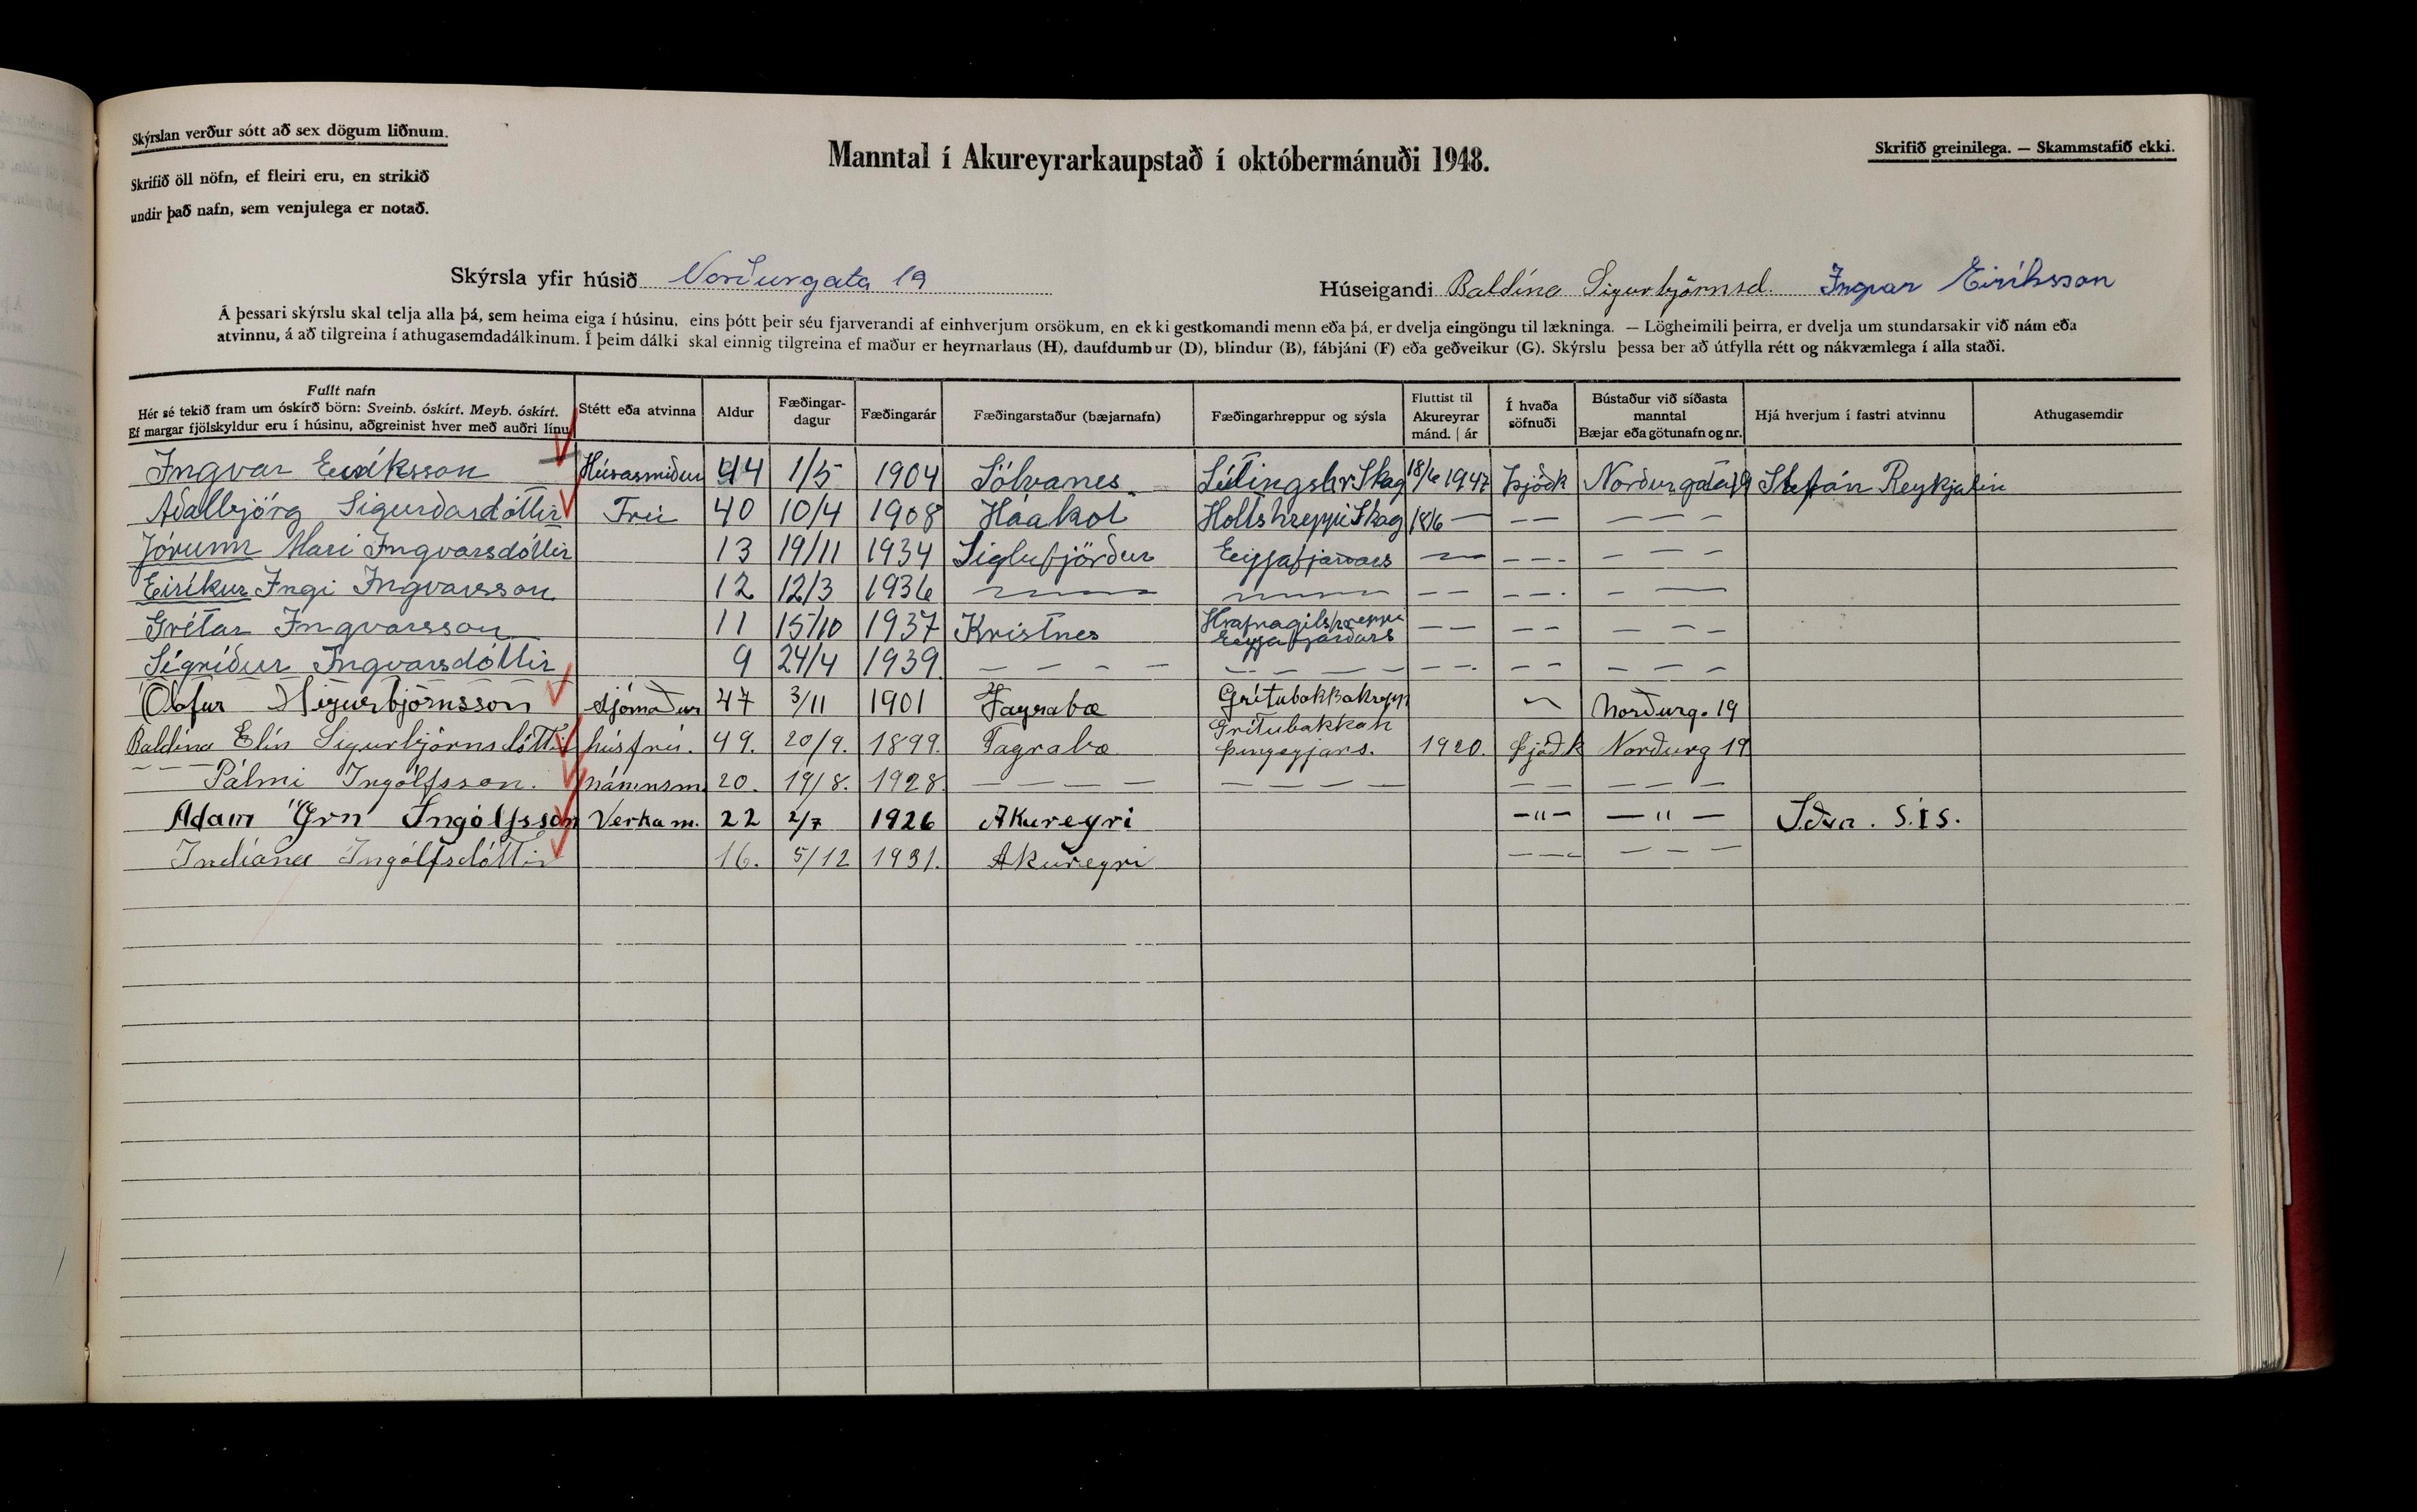 Skýrslan verður sótt að sex dögum liðnum.
Skrifið öll nöfn, ef fleiri eru, en strikið
undir það nafn, sem venjulega er notað.
Manntal í Akureyrarkaupstað í októbermánuði 1948.
Skrifið greinilega. — Skammstafið ekki.
Skýrsla yfir húsið Norðurgata 19
Húseigandi Baldína Sigurbjörnsd. Ingvar Eiríksson
Á þessari skýrslu skal telja alla þá, sem heima eiga í húsinu, eins þótt þeir séu fjarverandi af einhverjum orsökum, en ekki gestkomandi menn eða þá, er dvelja eingöngu til lækninga. — Lögheimili þeirra, er dvelja um stundarsakir við nám eða
atvinnu, á að tilgreina í athugasemdadálkinum. Í þeim dálki skal einnig tilgreina ef maður er heyrnarlaus (H), daufdumbur (D), blindur (B), fábjáni (F) eða geðveikur (G). Skýrslu þessa ber að útfylla rétt og nákvæmlega í alla staði.
Fullt nafn
Hér sé tekið fram um óskírð börn: Sveinb. óskírt. Meyb. óskírt.
Ef margar fjölskyldur eru í húsinu, aðgreinist hver með auðri línu
Stétt eða atvinna
Aldur
Fæðingar-
dagur
Fæðingarár
Fæðingarstaður (bæjarnafn)
Fæðingarhreppur og sýsla
Fluttist til
Akureyrar
mánd. | ár
Í hvaða
söfnuði
Bústaður við síðasta
manntal
Bæjar eða götunafn og nr.
Hjá hverjum í fastri atvinnu
Athugasemdir
Ingvar Eiríksson Húsasmiður 44 1/5 1904 Sölvanes Lýtingshr Skag 18/6 1947 Þjóðk Norðurgata 19 Stefán Reykjalín
Aðalbjörg Sigurðardóttir Frú 40 10/4 1908 Háakot Holtshreppi Skag 18/6 — — — — — —
Jórunn Mari Ingvarsdóttir 13 19/11 1934 Siglufjörður Eyjafjarðars — — — — — — —
Eiríkur Ingi Ingvarsson 12 12/3 1936 — — — — — — — — —
Grétar Ingvarsson 11 15/10 1937 Kristnes Hrafnagilshreppi Eyjafjarðars — — — — — — —
Sigríður Ingvarsdóttir 9 24/4 1939. — — — — — — — — — — — — — — —
Ólafur Sigurbjörnsson sjómaður 47 3/11 1901 Fagrabæ Grítubakkahrepp — Norðurg. 19
Baldína Elín Sigurbjörnsdóttir húsfrú. 49. 20/9. 1899. Fagrabæ Grítubakkah Þingeyjars. 1920. Þjóðk Norðurg 19
— — — Pálmi Ingólfsson. námsm. 20. 19/8. 1928. — — — — — — — — — — — — —
Adam Örn Ingólfsson Verkam. 22 2/7 1926 Akureyri —"— — " — Iðja. S.Í.S.
Indíana Ingólfsdóttir 16. 5/12 1931. Akureyri — — — — — —